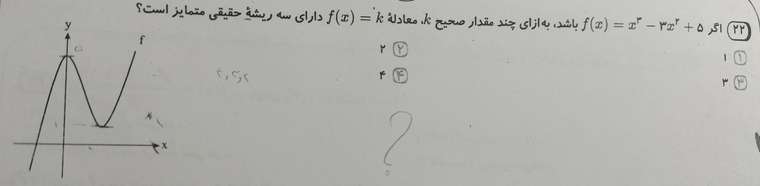 ۲۲ اگر f(x) = x³ − ۳x² + ۵ باشد، به‌ازای چند مقدار صحیح k، معادلهٔ f(x) = k دارای سه ریشهٔ حقیقی متمایز است؟
۱) ۱
۲) ۲
۳) ۳
۴) ۴
y
f
x
?